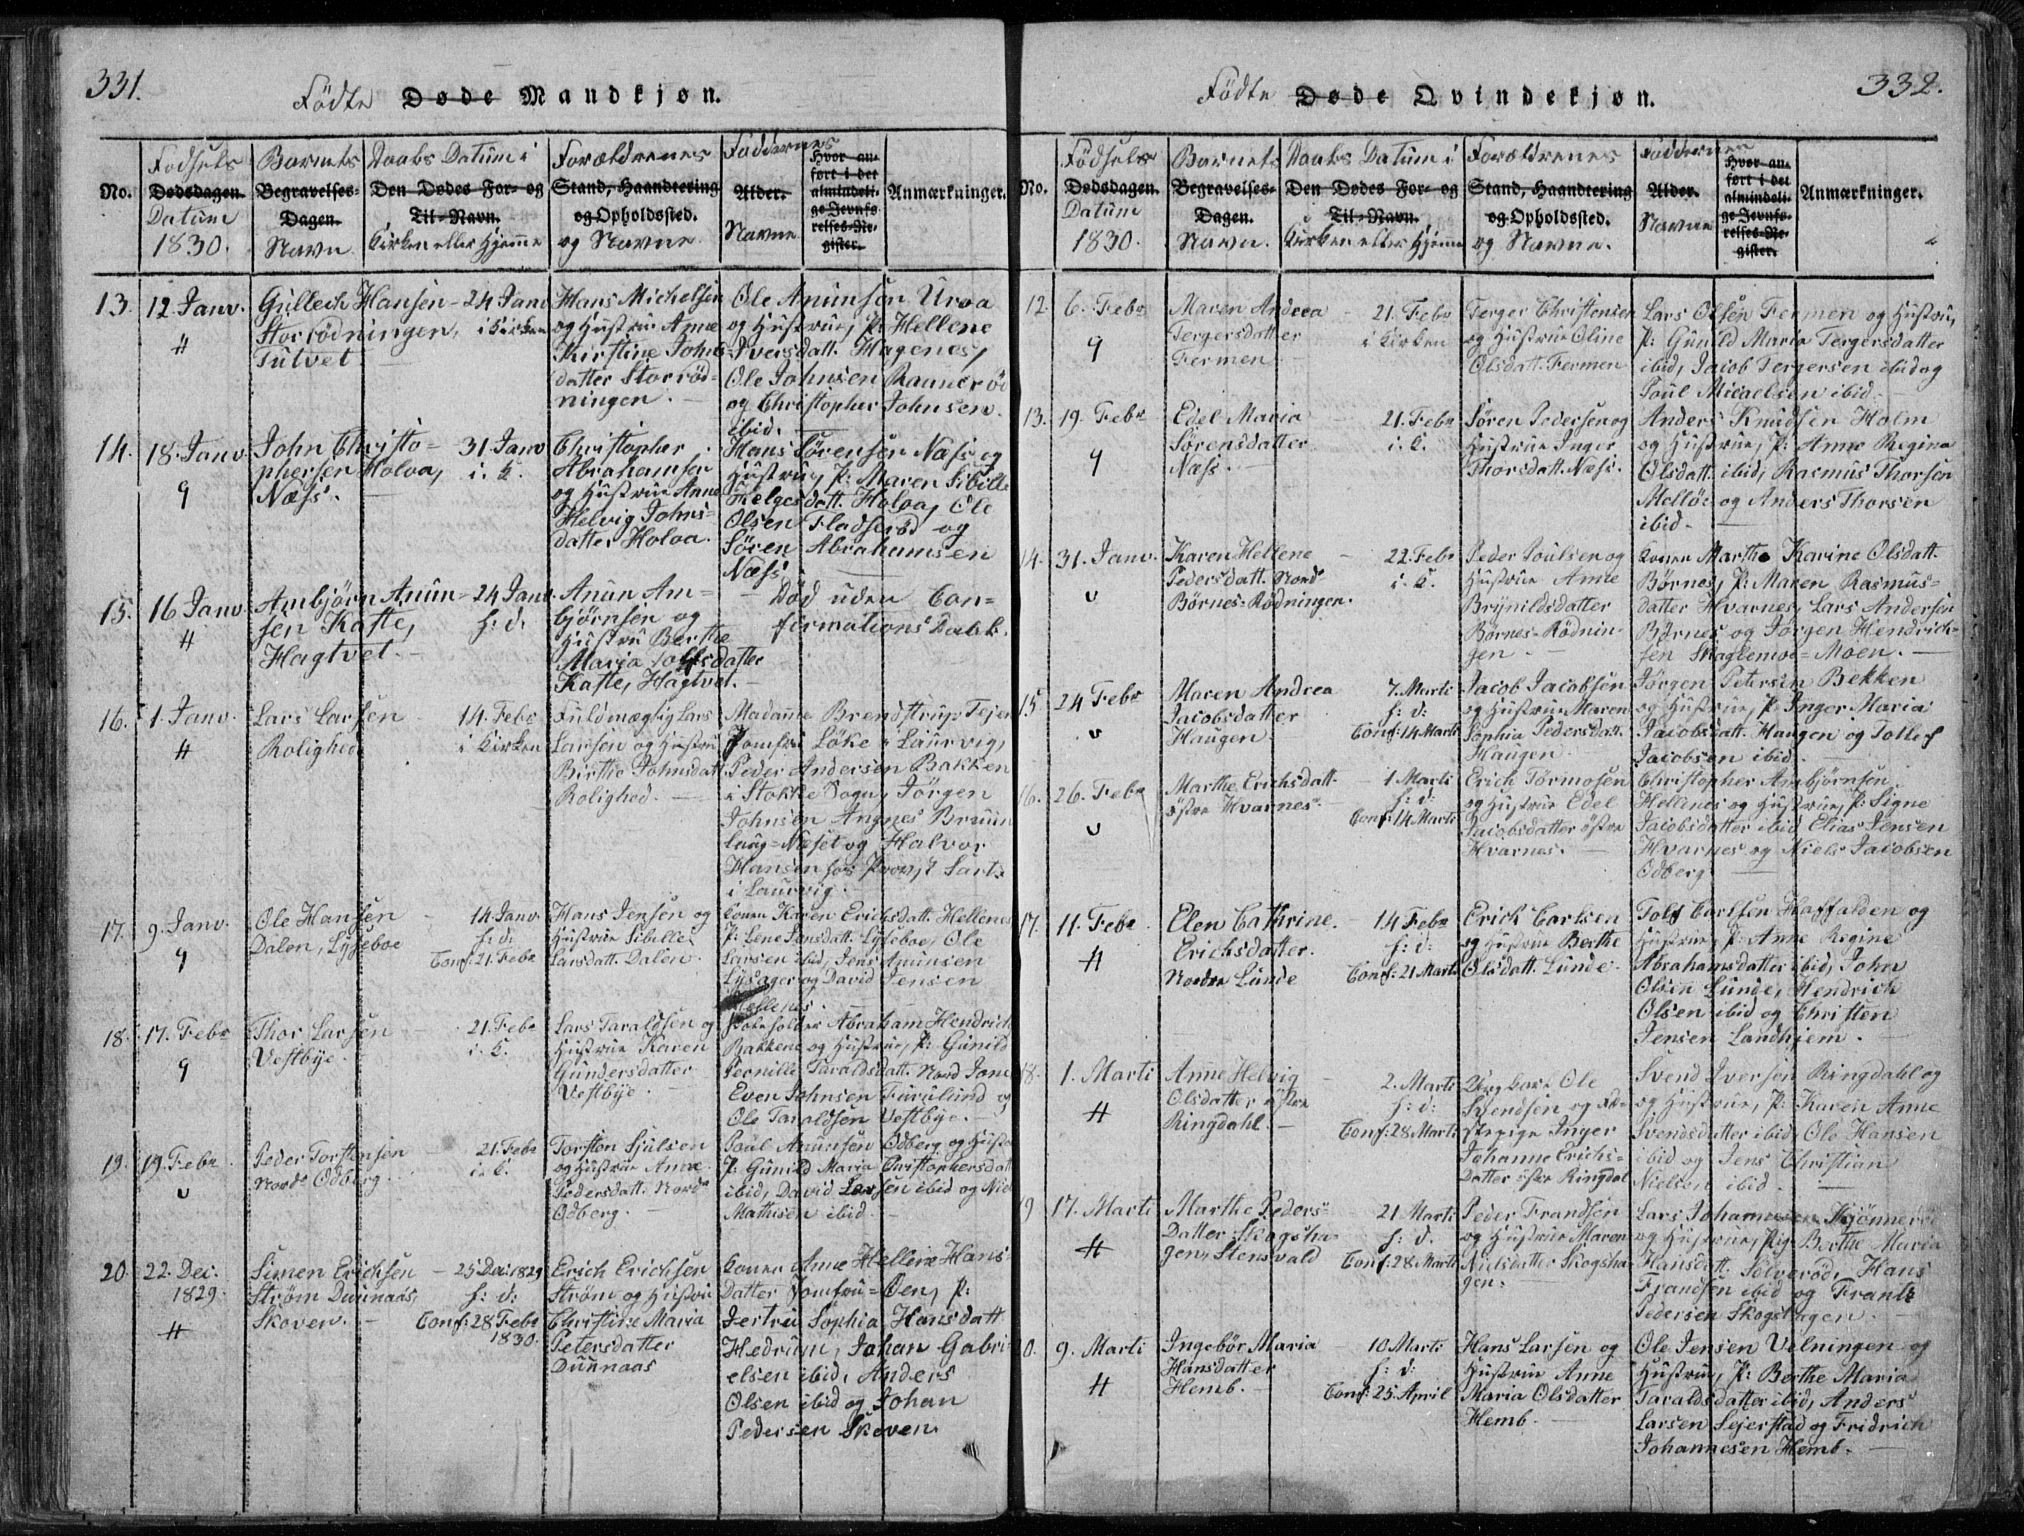 331.
Födte Døde Mandkjøn.
No.
Födsels
Dødsdagen.
Datum
1830.
Barnets
Begravelses-
Dagen.
Navn
Daabs Datum i
Den Dødes For- og
Til-Navn.
Kirken eller Hjemme
Forældrenes
Stand, Haandtering
og Opholdssted.
og Navne.
Faddernes
Alder.
Navne
Hvor an-
ført i det
almindeli-
ge Jevnfø-
relses-Re-
gister.
Anmærkninger.
13. 12 Janv.
H
Gullech Hansen
Storrödningen,
Tutvet.
24 Janv
i Kirken
Hans Michelsen
og Hustrue Anne
Kirstine Johns-
datter Storröd-
ningen.
Ole Anunsen Uroa
og Hustrue, P: Hellene
Iversdatt. Hagenes,
Ole Johnsen Raaneröd
og Christopher Johnsen
ibid.
14. 18. Janv
9
John Christo-
phersen Holva,
Næss.
31 Janv
i. K.
Christopher
Abrahamsen
og Hustrue Anne
Helvig Johns-
datter Holva.
Hans Sörensen Næss og
Hustrue, P: Maren Sibille
Helgesdatt. Holva, Ole
Olsen Fladseröd og
Sören Abrahamsen
Næss.
15. 16 Janv
H
Ambjörn Anun-
sen Kaste,
Hagtvet.
24 Janv.
h: d:
Anun Am-
bjørnsen og
Hustru Berthe
Maria Tolfsdatter
Kaste, Hagtvet.
Död uden Con-
firmations Daab.
16. 1. Janv.
H
Lars Larsen
Rolighed
14. Febr
i Kirken
Fuldmægtig Lars
Larsen og Hustru
Birthe Johnsdatt
Rolighed.
Madame Brendstrup Fejen
Jomfru Löke i Laurvig,
Peder Andersen Bakken
i Stokke Sogn, Jörgen
Johnsen Angnes Bruun
laug-Næset og Halvor
Hansen hos Provst Sartz
i Laurvig.
17. 9. Janv.
9
Ole Hansen
Dalen, Lyseboe
14. Janv
h: d:
Conf: 21. Febr
Hans Jensen og
Hustrue Sibille
Larsdatt. Dalen.
Konen Karen Erichsdatt. Hellenes
P: Lene Jensdatt. Lyseboe, Ole
Larsen ibid, Jens Anunsen
Lysager og David Jensen
Hellenes.
18. 17. Febr
9
Thor Larsen
Vestbye.
21. Febr
i. K.
Lars Taraldsen og
Hustrue Karen
Gundersdatter
Vestbye.
Skoleholder Abraham Hendrich
Bakkene og Hustrue, P: Gunild
Pernille Taraldsdatt. Nord
Even Johnsen Furulund og
Ole Taraldsen Vestbye.
19. 19. Febr
v
Peder Torstensen
Nordr Odberg.
21. Febr
i. K.
Torsten Sjulsen
og Hustrue Anne
Pedersdatt. Nordr
Odberg.
Poul Anunsen Odberg og Hustr
P: Gunild Maria Christophersdatt
ibid, David Larsen ibid og Niel
Mathisen ibid.
20. 22. Dec.
1829.
H
Simen Erichsen
Ström Dunnaas,
Skoven.
25 Dec: 1829
h: d:
Conf: 28 Febr
1830.
Erich Erichsen
Ström og Hustru
Christine Maria
Petersdatter
Dunnaas
Konen Anne Hellene Hans
Datter Jomfru-Öen, P:
Jertru Sophia Hansdatt
Hedrum, Johan Gabri
elsen ibid, Anders
Olsen ibid og Johan
Pedersen Skoven.
332.
Födte Døde Qvindekjøn.
No.
Födsels
Dødsdagen.
Datum
1830.
Barnets
Begravelses-
Dagen.
Navn.
Daabs Datum i
Den Dødes For- og
Til-Navn.
Kirken eller Hjemme
Forældrenes
Stand, Haandtering
og Opholdssted.
og Navne.
Faddernes
Alder.
Navne
Hvor an-
ført i det
almindeli-
ge Jevnfø-
relses-Re-
gister.
Anmærkninger.
12. 6. Febr
9
Maren Andrea
Tergersdatter
Fermen.
21. Febr
i Kirken
Terger Christensen
og Hustrue Oline
Olsdatt. Fermen
Lars Olsen Fermen og Hustru,
P: Gunild Maria Tergersdatter
ibid, Jacob Tergersen ibid og
Poul Micaelsen ibid.
13. 19. Febr
9
Edel Maria
Sörensdatter
Næss.
21. Febr
i. K.
Sören Pedersen og
Hustrue Inger
Thorsdatt. Næss.
Anders Knudsen Holm
og Hustrue, P: Anne Regina
Olsdatt. ibid, Rasmus Thorsen
Mellöe og Anders Thorsen
ibid.
14. 31. Janv.
v
Karen Hellene
Pedersdatt. Nordr
Börnes-Rödningen.
22. Febr
i. K.
Peder Poulsen og
Hustrue Anne
Brynildsdatter
Börnes-Rödnin-
gen.
Konen Marthe Karine Olsdatt.
Börnes, P: Maren Rasmus-
datter Hvarnes, Lars Andersen
Börnes og Jörgen Hendrich-
sen Skaglemoe-Moen.
15. 24 Febr
v
Maren Andrea
Jacobsdatter
Haugen
7. Marti
h: d:
Conf: 14 Marti
Jacob Jacobsen
og Hustrue Maren
Sophia Pedersdatt.
Haugen.
Jörgen Petersen Bekken
og Hustrue, P: Inger Maria
Jacobsdatt. Haugen og Tollef
Jacobsen ibid.
16. 26. Febr
v
Marthe Erichsdatt.
östre Hvarnes.
1. Marti
h: d:
Conf: 14 Marti
Erich Tormosen
og Hustrue Edel
Jacobsdatter östre
Hvarnes.
Christopher Ambjörnsen
Hellenes og Hustrue, P: Signe
Jacobsdatter ibid, Elias Jensen
Hvarnes og Niels Jacobsen
Odberg.
17. 11. Febr
H
Elen Cathrine
Erichsdatter.
Nordre Lunde
14. Febr
h: d:
Conf: 21 Marti
Erich Carlsen
og Hustrue Berthe
Olsdatt. Lunde.
Tolf Carlsen Haffalden og
Hustrue, P: Anne Regine
Abrahamsdatter ibid, John
Olsen Lunde, Hendrich
Olsen ibid og Christen
Jensen Landhjem.
18. 1. Marti
H
Anne Helvig
Olsdatter östre
Ringdahl.
2. Marti
h: d:
Conf: 28 Marti
Ungkarl Ole
Svendsen og
Inger
Johanne Erichs-
Datter östre Ringdal
Svend Iversen Ringdahl og
og Hustrue, P: Karen Anne
Svendsdatter ibid, Ole Hansen
ibid og Jens Christian
Nielsen ibid.
19 17. Marti
H
Marthe Peders-
Datter Skogsha-
gen, Stensvald
21 Marti
h: d:
Conf: 28 Marti
Peder Frandsen
og Hustrue Maren
Nielsdatter Skogsha-
gen.
Lars Johannesen Kjönneröd
og Hustrue, Pig: Berthe Maria
Hansdatt. Sölveröd, Hans
Frandsen ibid og Frants
Pedersen Skogshagen.
20. 9. Marti
H
Ingebör Maria
Hansdatter
Hemb.
10 Marti
h: d:
Conf: 25 April
Hans Larsen og
Hustrue Anne
Maria Olsdatter
Hemb.
Ole Jensen Velningen og
Hustrue, P: Berthe Maria
Taraldsdatter ibid, Anders
Larsen Sejerstad og Fridrich
Johannesen Hemb.